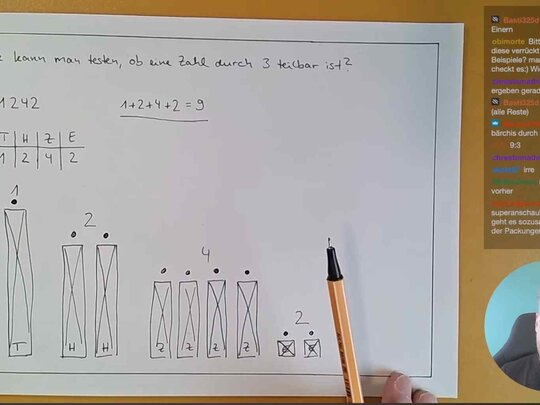 kann man testen, ob eine Zahl durch 3 teilbar ist?
1242
1+2+4+2 = 9
T H Z E
1 2 4 2
1
2
4
2
T H H Z Z Z Z
Basti325d
Einern
obimorte Bitt
diese verrückt
Beispiele? mar
checkt es;) Wi
ergeben gerad
Basti325d
(alle Reste)
bärchis durch
9:3
irre
vorher
superanschau
geht es sozusa
der Packungen